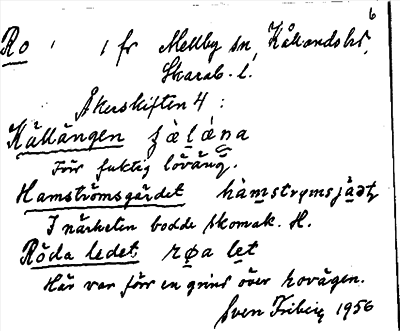 6
Ro ı ı fr Mellby sn, Kållandshd,
Skarab. l.
Åkerskiften 4 :
Källängen
Förr fuktig löväng.
Hamströmsgärdet
I närheten bodde skomak. H.
Röda ledet røa let
Här var förr en grind över hovägen.
Sven Fribeig 1956